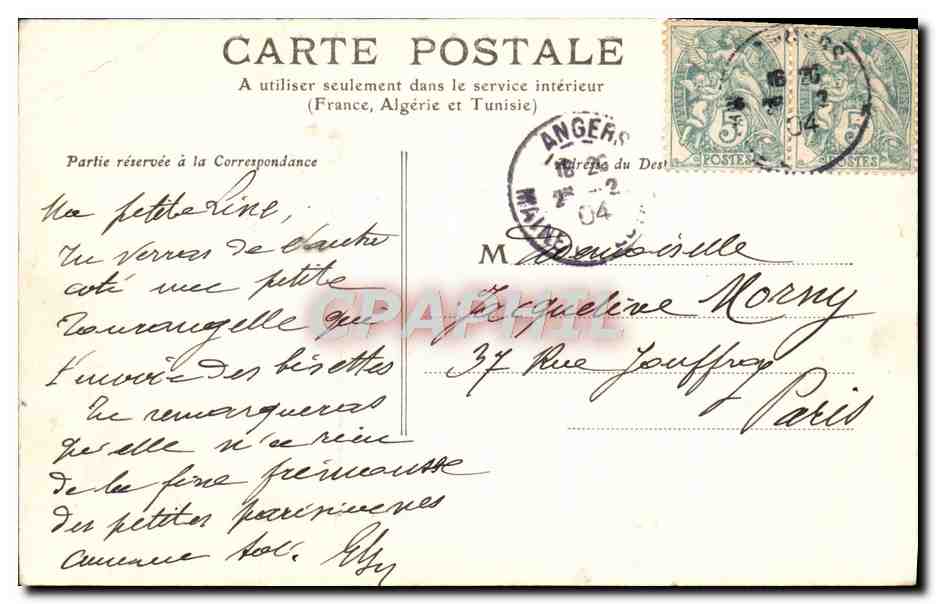 CARTE POSTALE
A utiliser seulement dans le service intérieur
(France, Algérie et Tunisie)
Partie réservée à la Correspondance
Adresse du Dest
ANGERS
16 26
2 - 2
04
MAINE
5 POSTES
5 POSTES
16 26
04
Ma petite Line,
Tu verras de l'autre
coté une petite
Tourangelle qui
t'envoie des bisettes
Tu remarqueras
qu'elle n'a rien
de la fine frimousse
des petites parisiennes
comme toi.
M Demoiselle
Jacqueline Morny
37 Rue Jouffroy
Paris
CPAPHIL